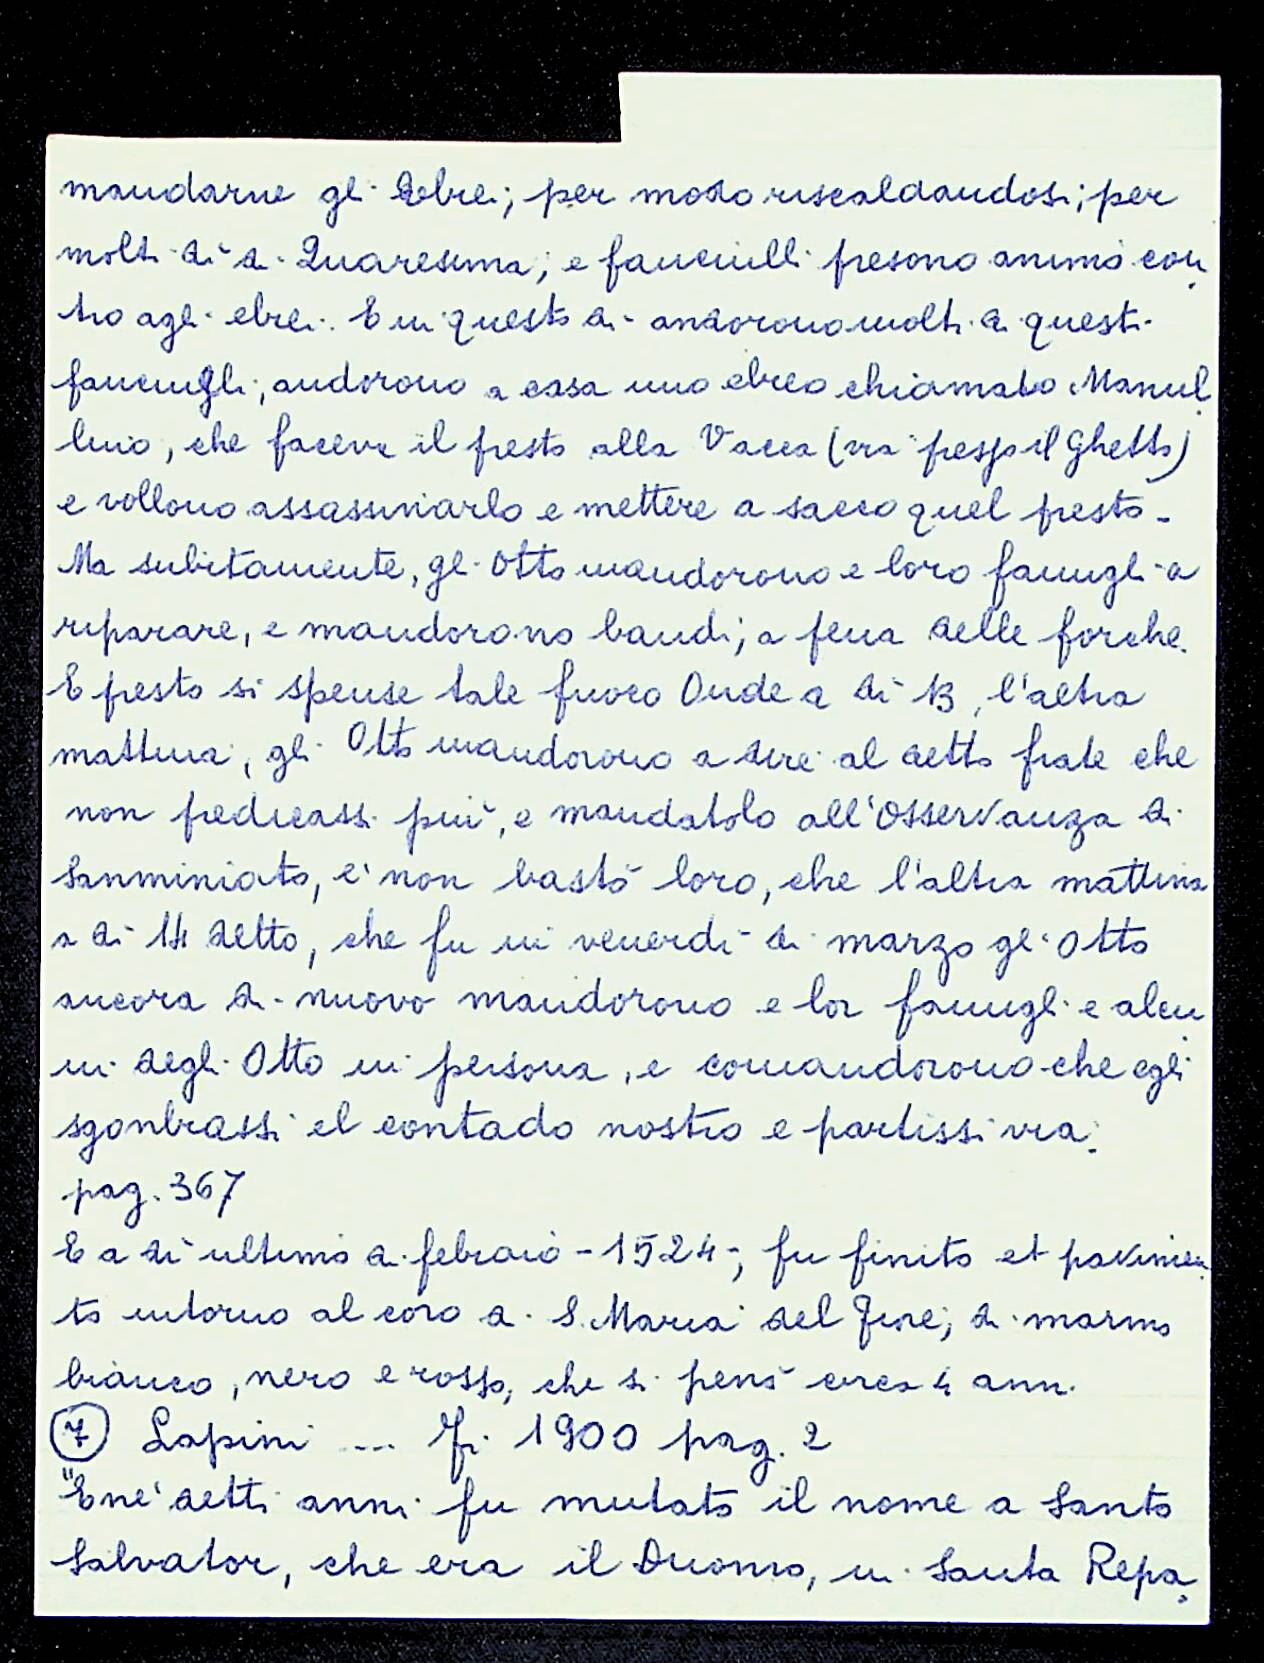 mandarne gli Ebrei; per modo riscaldandosi; per
molti dì di Quaresima; e fanciulli presono animo con
tro agli ebrei. E in questo dì andorono molti di questi
fanciugli; andorono a casa uno ebreo chiamato Manul
lino, che faceva il presto alla Vacca (via presso il Ghetto)
e vollono assassinarlo e mettere a sacco quel presto.
Ma subitamente, gli Otto mandorono e loro famigli a
riparare, e mandorono bandi; a pena delle forche.
E presto si spense tale fuoco Onde a dì 13, l'altra
mattina, gli Otto mandorono a dire al detto frate che
non predicassi più, e mandatolo all'Osservanza di
Sanminiato, e' non bastò loro, che l'altra mattina
a dì 14 detto, che fu in venerdì di marzo gli Otto
ancora di nuovo mandorono e lor famigli e alcu
ni degli Otto in persona, e comandorono che egli
sgonbrassi el contado nostro e partissi via.
pag. 367
E a dì ultimo di febraio - 1524 -, fu finito et pavimen
to intorno al coro di S. Maria del Fiore; di marmo
bianco, nero e rosso, che si penò circa 4 anni.
(7) Lapini ... Fi 1900 pag. 2
"E ne' detti anni fu mutato il nome a Santo
Salvator, che era il Duomo, in Santa Repa